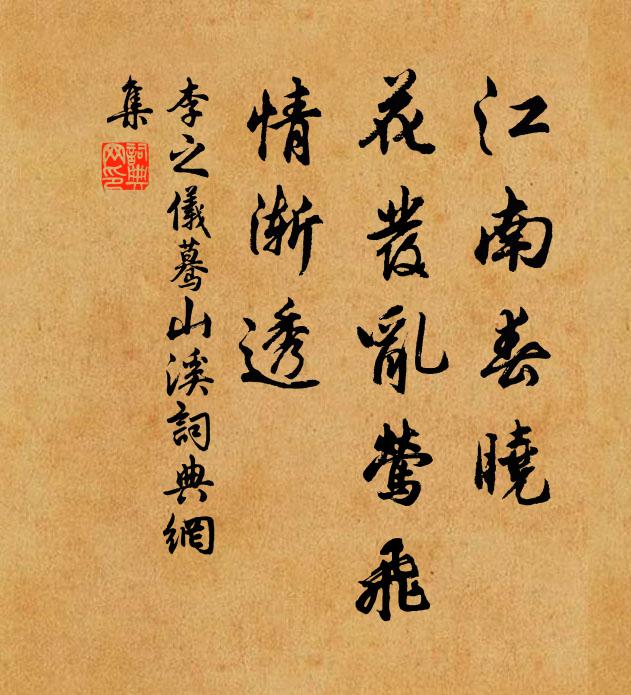 江南春曉
花發亂鶯飛
情漸透
李之儀蓦山溪詞典網
集
詞典
网印